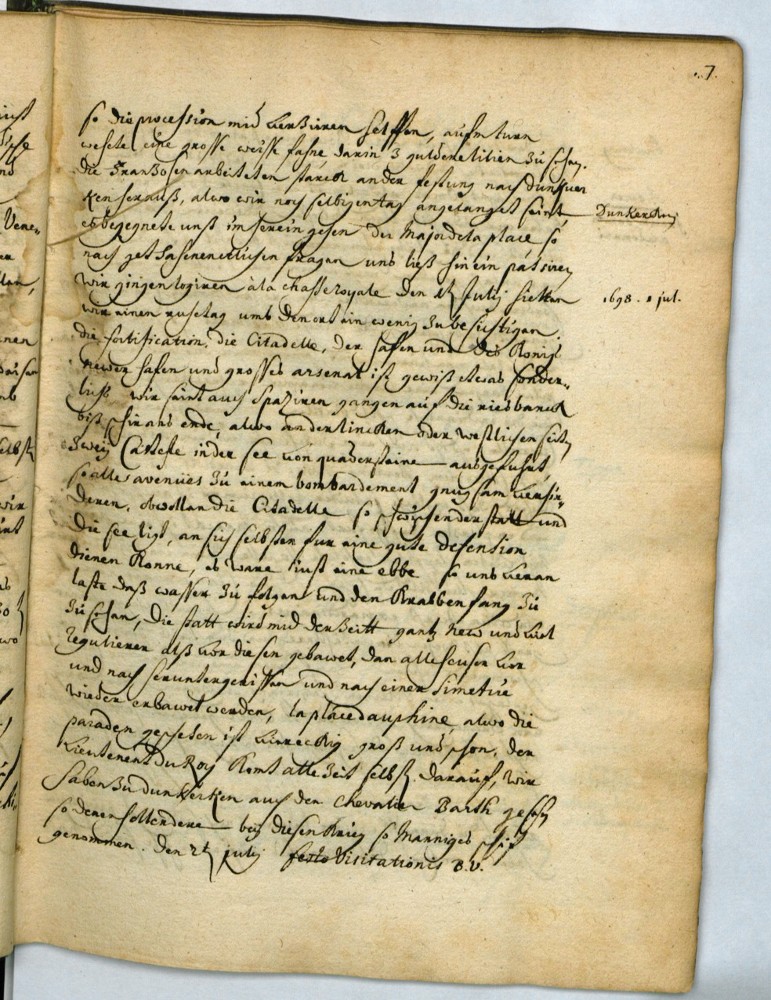 7.
so die procession mid verziren helffen, aufm turn
wehete eine grosse weisse fahne darin 3 guldene lilien zu sehen.
die Franzosen arbeiteten starck an der festung nach dunker
ken herauß, alwo wir noch selbigen tag angelanget seint
Dunkerken
es begegnete unß im herein gehen der Major de la place so
nach gethahenen etlichen fragen uns ließ hin ein passiren
wir gingen logiren à la chasse royale den 1t July hielten
1698. 1 jul.
wir einen rustag umb den ort ein wenig zu besichtigen.
die fortification, die Citadelle, der hafen und des Konigs
newer hafen und grosses arsenal ist gewiß etwas sonder-
liches wir seint auch spaziren gangen auf die riesbanck
biß hin ans ende, alwo an der lincken oder westlichen seit
zwey Castele in der see von quadersteine aufgefuhrt
so alle avenües zu einem bombardement gnugsam verhin-
deren, obwollen die Citadelle so zwischen der statt und
die see ligt, an sich selbsten fur eine gute defension
dienen konne, es ware iust eine ebbe so uns veran
laste daß wasser zu folgen und den Krabbenfang zu
zu sehen, die statt wird mid der zeitt gantz new und viel
regulierer alß vor diesen gebawet, dan alle heuser vor
und nach heruntergerissen und nach einer Simetrie
wieder erbawet werden, la place dauphine, alwo die
paraden geschehen ist viereckig groß und schon, der
Lieutenent du Roy komt alle zeit selbst darauf, wir
haben zu dunkerken auch den Chevalier Barth gesehen
so denen hollendere bey diesen krieg so manniges schif
genommen. den 2t july festo Visitationis B.V.